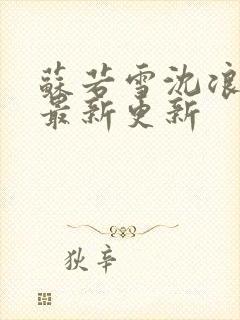 蘇若雪沈浪
最新更新
狄辛